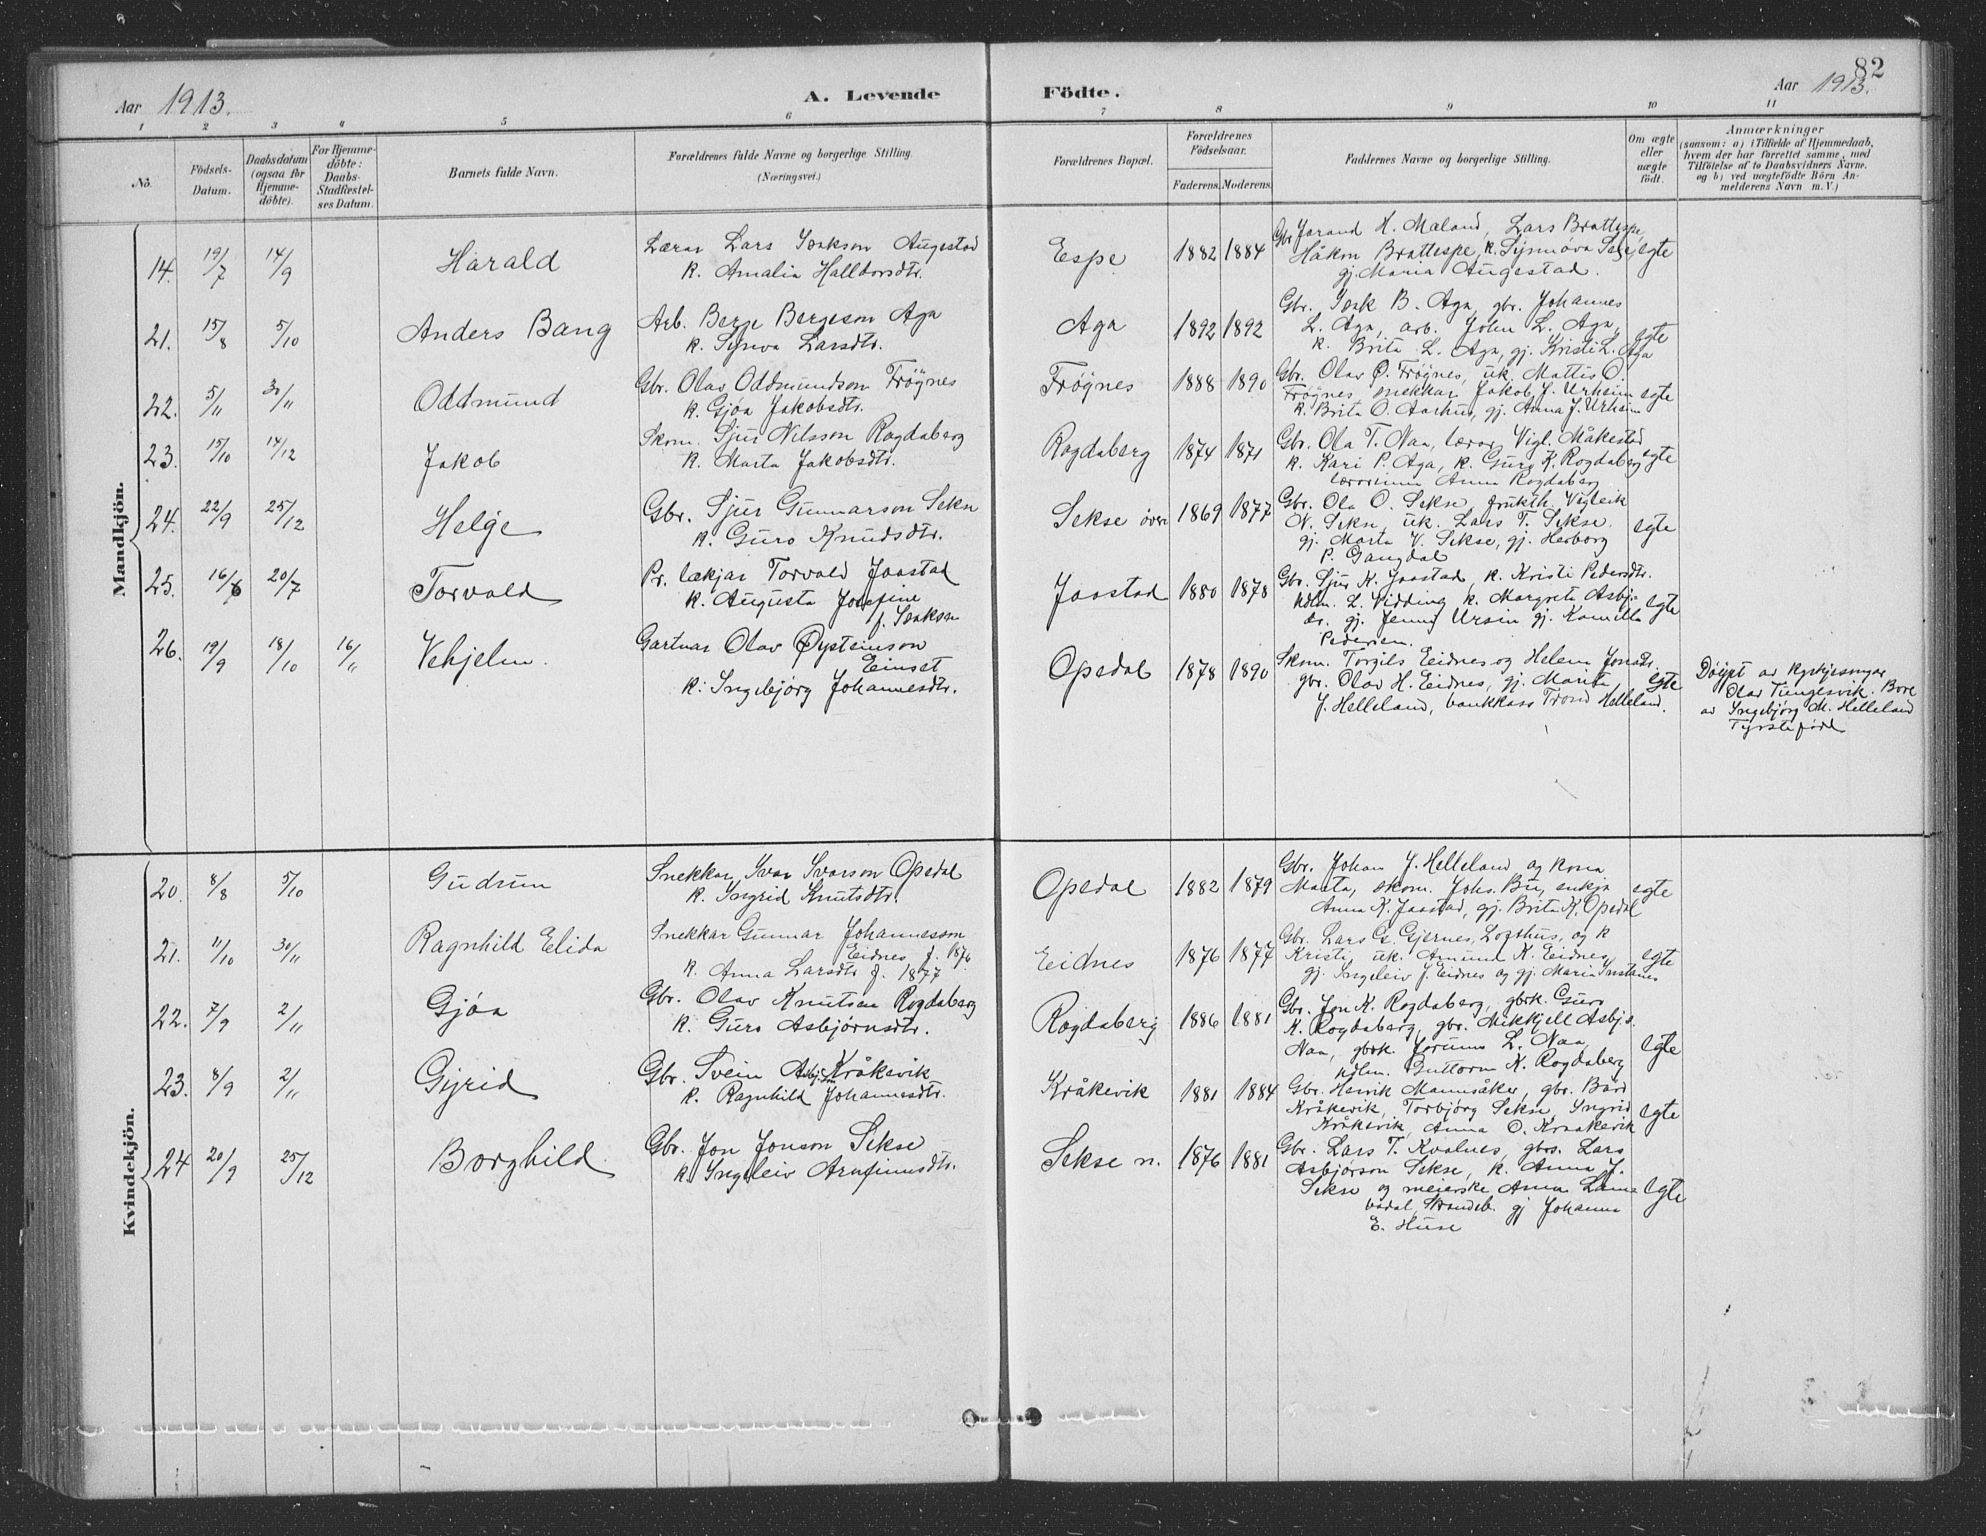 82
Aar 1913.
A. Levende Födte.
Aar 1913.
1 2 3 4 5 6 7 8 9 10 11
No.
Födsels-
Datum.
Daabsdatum
(ogsaa for
Hjemme-
döbte).
For Hjemme-
döbte:
Daabs-
Stadfæstel-
ses Datum.
Barnets fulde Navn.
Forældrenes fulde Navne og borgerlige Stilling.
(Næringsvei.)
Forældrenes Bopæl.
Forældrenes
Födselsaar.
Faderens. Moderens.
Faddernes Navne og borgerlige Stilling.
Om ægte
eller
uægte
födt.
Anmærkninger
(saasom: a) i Tilfælde af Hjemmedaab,
hvem der har forrettet samme, med
Tilföielse af to Daabsvidners Navne.
og b) ved uægtefödte Börn An-
melderens Navn m. V.)
Mandkjön.
14. 19/7 14/9 Harald
Lærar Lars Isakson Augestad
k. Amalia Halldorsdtr.
Espe 1882 1884
Gbr Jorand K. Måland, Lars Brattespe,
Håkon Brattespe, k. Synnöva
gj. Maria Augestad.
egte
21. 15/8 5/10 Anders Bang
Arb. Berge Bergeson Aga
k. Synva Larsdtr.
Aga 1892 1892
Gbr. Isak B. Aga, gbr. Johannes
L. Aga, arb. John L. Aga,
k. Brita L. Aga, gj. Kristi L. Aga
egte
22. 5/11 30/11 Oddmund
Gbr. Olav Oddmundson Frøgnes
k. Gjøa Jakobsdtr.
Frøgnes 1888 1890
Gbr. Olav O. Frøgnes, uk. Mattis O.
Frøgnes snekkar Jakob J. Urheim
k. Brita O. Aarhus, gj. Anna J. Urheim
egte
23. 15/10 14/12 Jakob
Skom. Sjur Nilsson Rogdaberg
k. Marta Jakobsdtr.
Rogdaberg 1874 1871
Gbr. Ola T. Naa, lærar Vigl. Måkestad
k. Kari P. Aga, k. Guro K. Rogdaberg
lærarinna Anna Rogdaberg
egte
24. 22/9 25/12 Helge
Gbr. Sjur Gunnarson Sekse
k. Guro Knudsdtr.
Sekse øvre 1869 1877
Gbr. Ola O. Sekse, frukth. Vigleik
N. Sekse, uk. Lars T. Sekse,
gj. Marta V. Sekse, gj. Herborg
P. Gangdal
egte
25. 16/6 20/7 Torvald
Pr. lækjar Torvald Jaastad
k. Augusta Josefine
f. Isaksen
Jaastad 1880 1878
Gbr. Sjur K. Jaastad, k. Kristi Pedersdtr.
hdlm. L. Vidding k. Margreta Asbj.
dr. gj. Jenny Ursin gj. Kamilla
Pedersen.
egte
26. 19/9 18/10 16/11 Vehjelm.
Gartnar Olav Øysteinson
Einset
k. Ingebjørg Johannesdtr.
Opedal 1878 1890
Skom. Torgils Eidnes og Helem Jonsdtr.
gbr. Olav H. Eidnes, gj. Marita
J. Helleland, bankkass Trond Helleland.
egte
Døypt av kyrkjesongar
Olav Tungesvik. Bore
av Ingebjørg M. Helleland
Tyrstefødt
Kvindekjön.
20. 8/8 5/10 Gudrun
Snekkar Ivar Ivarson Opedal
k. Ingrid Knutsdtr.
Opedal 1882 1879
Gbr. Johan J. Helleland og kona
Marta, skom. Johs. Bu, enkja
Anna K. Jaastad, gj. Brita K. Opedal
egte
21. 11/10 30/11 Ragnhild Elida
Snekkar Gunnar Johannesson
Eidnes f. 1876
k. Anna Larsdtr f. 1877.
Eidnes 1876 1877
Gbr. Lars G. Gjernes, Lofthus, og k
Kristi, uk. Amund K. Eidnes,
gj. Ingeleiv J. Eidnes og gj. Mari Instanes
egte
22. 7/9 2/11 Gjøa
Gbr. Olav Knutsen Rogdaberg
k. Guro Asbjørnsdtr.
Rogdaberg 1886 1881
Gbr. Jon K. Rogdaberg, gbrk. Guro
K. Rogdaberg, gbr. Mikkjell Asbjs.
Naa, gbrk. Jorunn L. Naa,
hdlm. Guttorm K. Rogdaberg
egte
23. 8/9 2/11 Gyrid
Gbr. Svein Asbj.son Kråkevik
k. Ragnhild Johannesdtr.
Kråkevik 1881 1884
Gbr. Henrik Mannsåker, gbr. Bård
Kråkevik, Torbjørg Sekse, Yngrid
Kråkevik, Anna O. Kraakevik
egte
24 20/9 25/12 Borghild.
Gbr. Jon Jonson Sekse
k. Ingeleiv Arnfinnsdtr.
Sekse n. 1876 1881
Gbr. Lars T. Kvalnes, gbrs. Lars
Asbjørson Sekse, k. Anna J.
Sekse og meierske Anna Lame
bødal, Strandeb. gj Johanna
E. Huse
egte